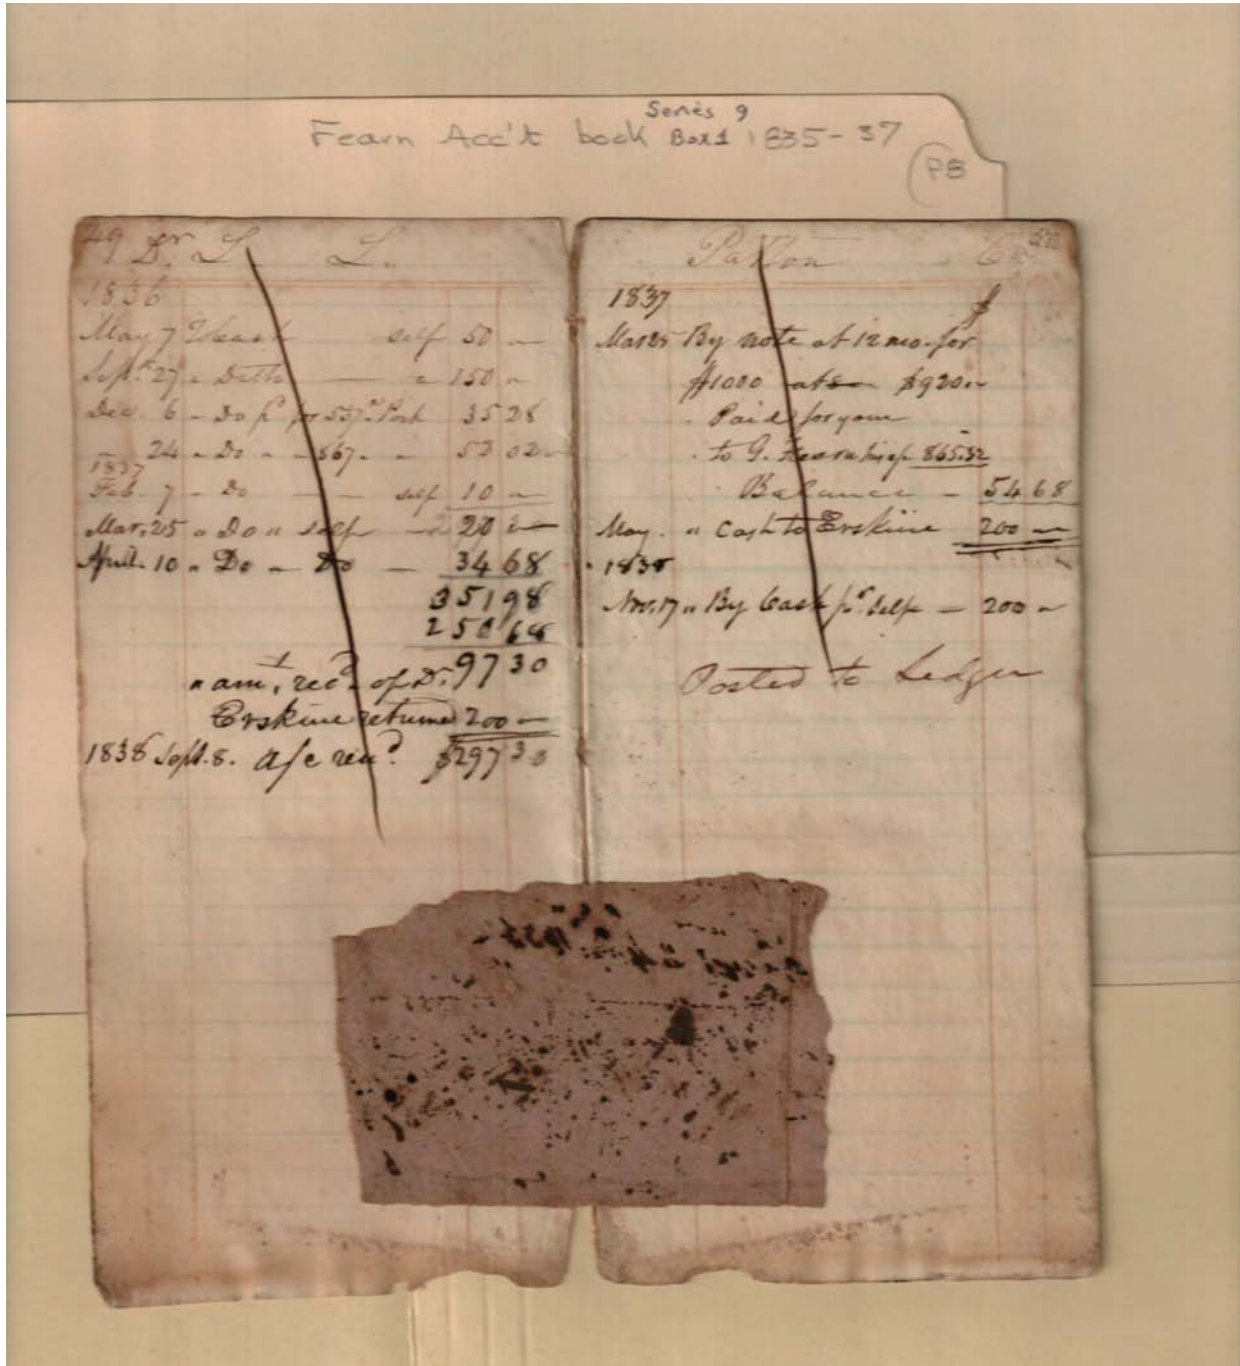 Series 9
Fearn Acc't book Box 1 1835-37
P8
49 Dr. L. L.
1836
May 7 To cash self 50 "
Sept. 27 " Ditto " 150 "
Dec. 6 " Do pd for 537 Pork 35 28
24 " Do " " 867 " " 52 02
1837
Feb. 7 " Do self 10 "
Mar. 25 " Do " self 20 "
April 10 " Do " Do 34 68
351 98
250 68
97 30
" amt. recd. of Dr.
Erskine returned 200 "
1838 Sept. 8. a/c recd $297 30
Paxton Cr. 50
1837 $
Mar 25 By note at 12 mo. for
$1000 at $920 "
Paid for you
to G. Fearn 865.32
Balance 54 68
May " Cash to Erskine 200 "
1838
Nov. 17 " By Cash pr. Self 200 "
Posted to Ledger